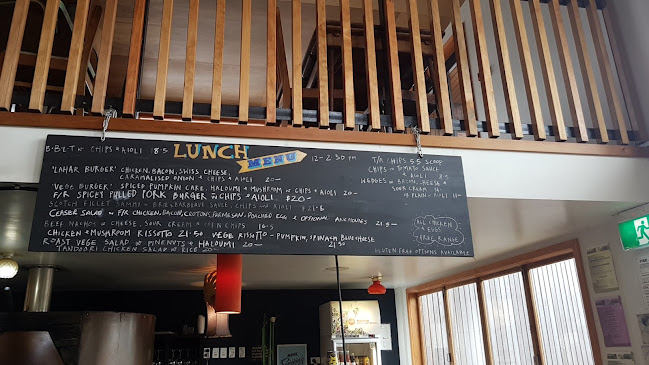 LUNCH MENU 12-2.30 PM
B·B·L·T w CHIPS & AIOLI 18·5
'LAHAR BURGER' CHICKEN, BACON, SWISS CHEESE,
CARAMALISED ONION & CHIPS & AIOLI 20-
'VEGE BURGER' SPICED PUMPKIN CAKE, HALOUMI & MUSHROOM w CHIPS & AIOLI 20-
F/R SPICEY PULLED PORK BURGER w CHIPS & AIOLI $20-
SCOTCH FILLET SAMMY w BBQ SAUCE, CHIPS & AIOLI
CEASER SALAD w F/R CHICKEN, BACON, CROTONS, PARMESAN, POACHED EGG & OPTIONAL ANCHOVIES 21.5-
BEEF NACHOS w CHEESE, SOUR CREAM & CHIPS 16-
CHICKEN & MUSHROOM RISSOTO 21·50 VEGE RISSOTO - PUMPKIN, SPINACH BLUE CHEESE
21·50
ROAST VEGE SALAD w PINENUTS & HALOUMI 20-
TANDOORI CHICKEN SALAD w RICE 20-
T/A CHIPS 5.5 SCOOP
CHIPS w TOMATO SAUCE
& AIOLI 8-
WEDGES w BACON, CHEESE &
SOUR CREAM 14-
PLAIN w AIOLI 11-
ALL CHICKEN
& EGGS
FREE RANGE
GLUTEN FREE OPTIONS AVAILABLE